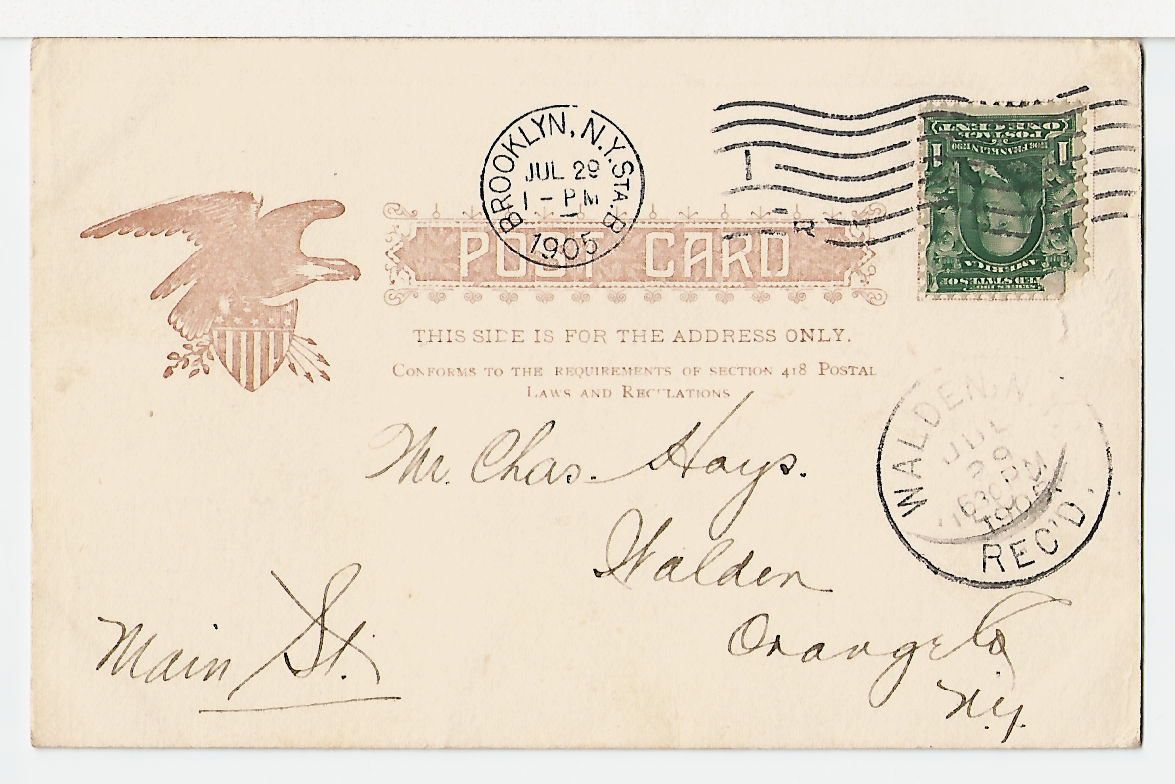 BROOKLYN, N.Y. STA. B
JUL 29
1 - PM
1905
1
R
ONE CENT
POSTAGE
1706 FRANKLIN 1790
1 1
AMERICA
UNITED STATES OF
SERIES 1902
POST CARD
THIS SIDE IS FOR THE ADDRESS ONLY.
CONFORMS TO THE REQUIREMENTS OF SECTION 418 POSTAL
LAWS AND REGULATIONS
WALDEN, N.
JUL
29
630PM
1905
REC'D.
Mr. Chas. Hays.
Walden
Orange Co
N.Y.
Main St.